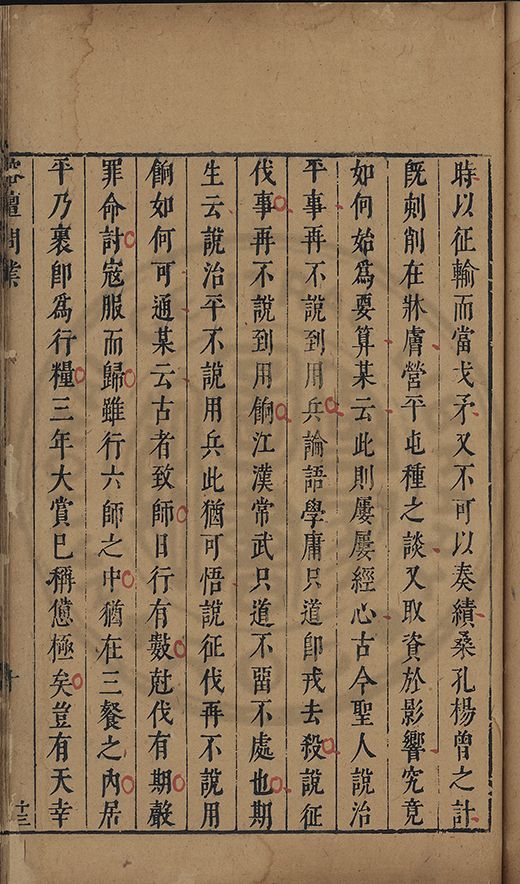 時以征輸而當戈矛又不可以奏績桑孔楊曾之計
旣刻削在牀膚營平屯種之談又取資於影響究竟
如何始爲要算某云此則屢屢經心古今聖人說治
平事再不說到用兵論語學庸只道卽戎去殺說征
伐事再不說到用餉江漢常武只道不畱不處也期
生云說治平不說用兵此猶可悟說征伐再不說用
餉如何可通某云古者致師日行有數尅伐有期聲
罪命討冦服而歸雖行六師之中猶在三餐之內居
平乃裹卽爲行糧三年大賞巳稱憊極矣豈有天幸
壇問業
十三